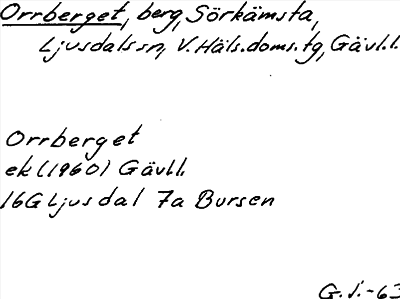 Orrberget, berg, Sörkämsta,
Ljusdals sn, V. Häls. doms. tg, Gävl.l.
Orrberget
ek (1960) Gävll.
16G Ljusdal 7a Bursen
G.J.-63